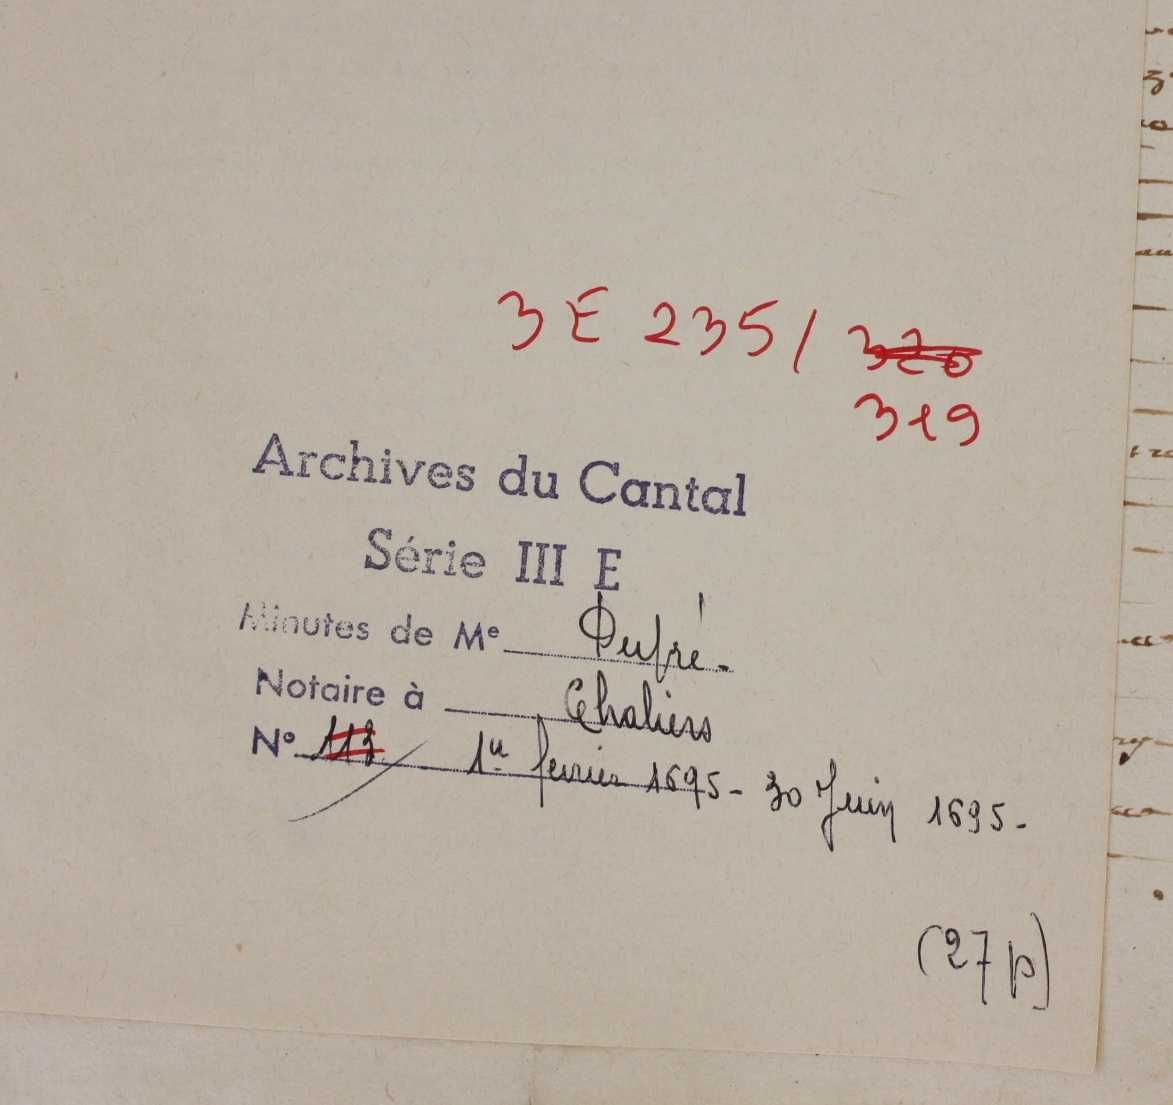 3 E 235 / 320
319
Archives du Cantal
Série III E
Minutes de Me Dufré.
Notaire à Chaliers
N° 113 1er fevrier 1695 - 30 Juin 1695.
(27 p)